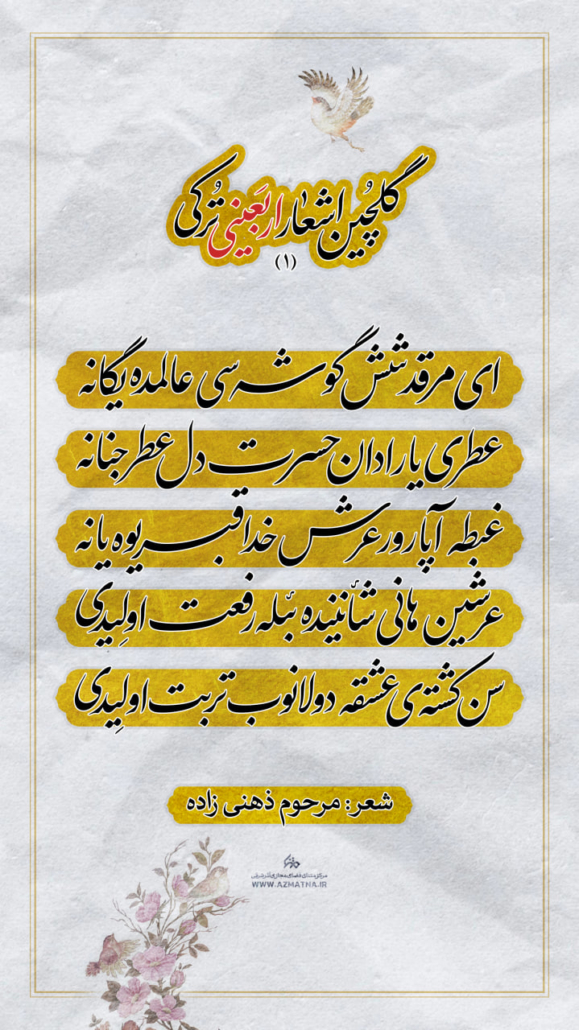 گلچین اشعار اربعینی تُرکی
(۱)
ای مرقد شش گوشه سی عالمده یگانه
عطری یارادان حسرت دل عطر جنانه
غبطه آپارور عرش خدا قبریوه یانه
عرشین هانی شأنینده بئله رفعت اولیدی
سن کشته‌ی عشقه دولانوب تربت اولیدی
شعر: مرحوم ذهنی زاده
WWW.AZMATHA.IR